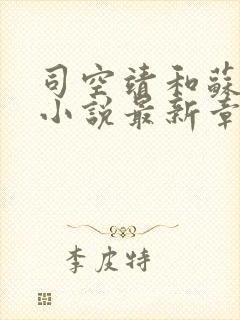 司空靖和蘇
小說最新章
李皮特